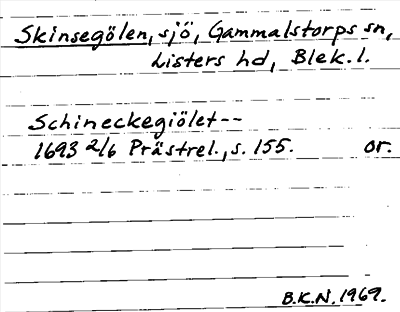 Skinsegölen, sjö, Gammalstorps sn,
Listers hd, Blek. l.
Schineckegiölet--
1693 2/6 Prästrel., s. 155. or.
B.K.N. 1969.